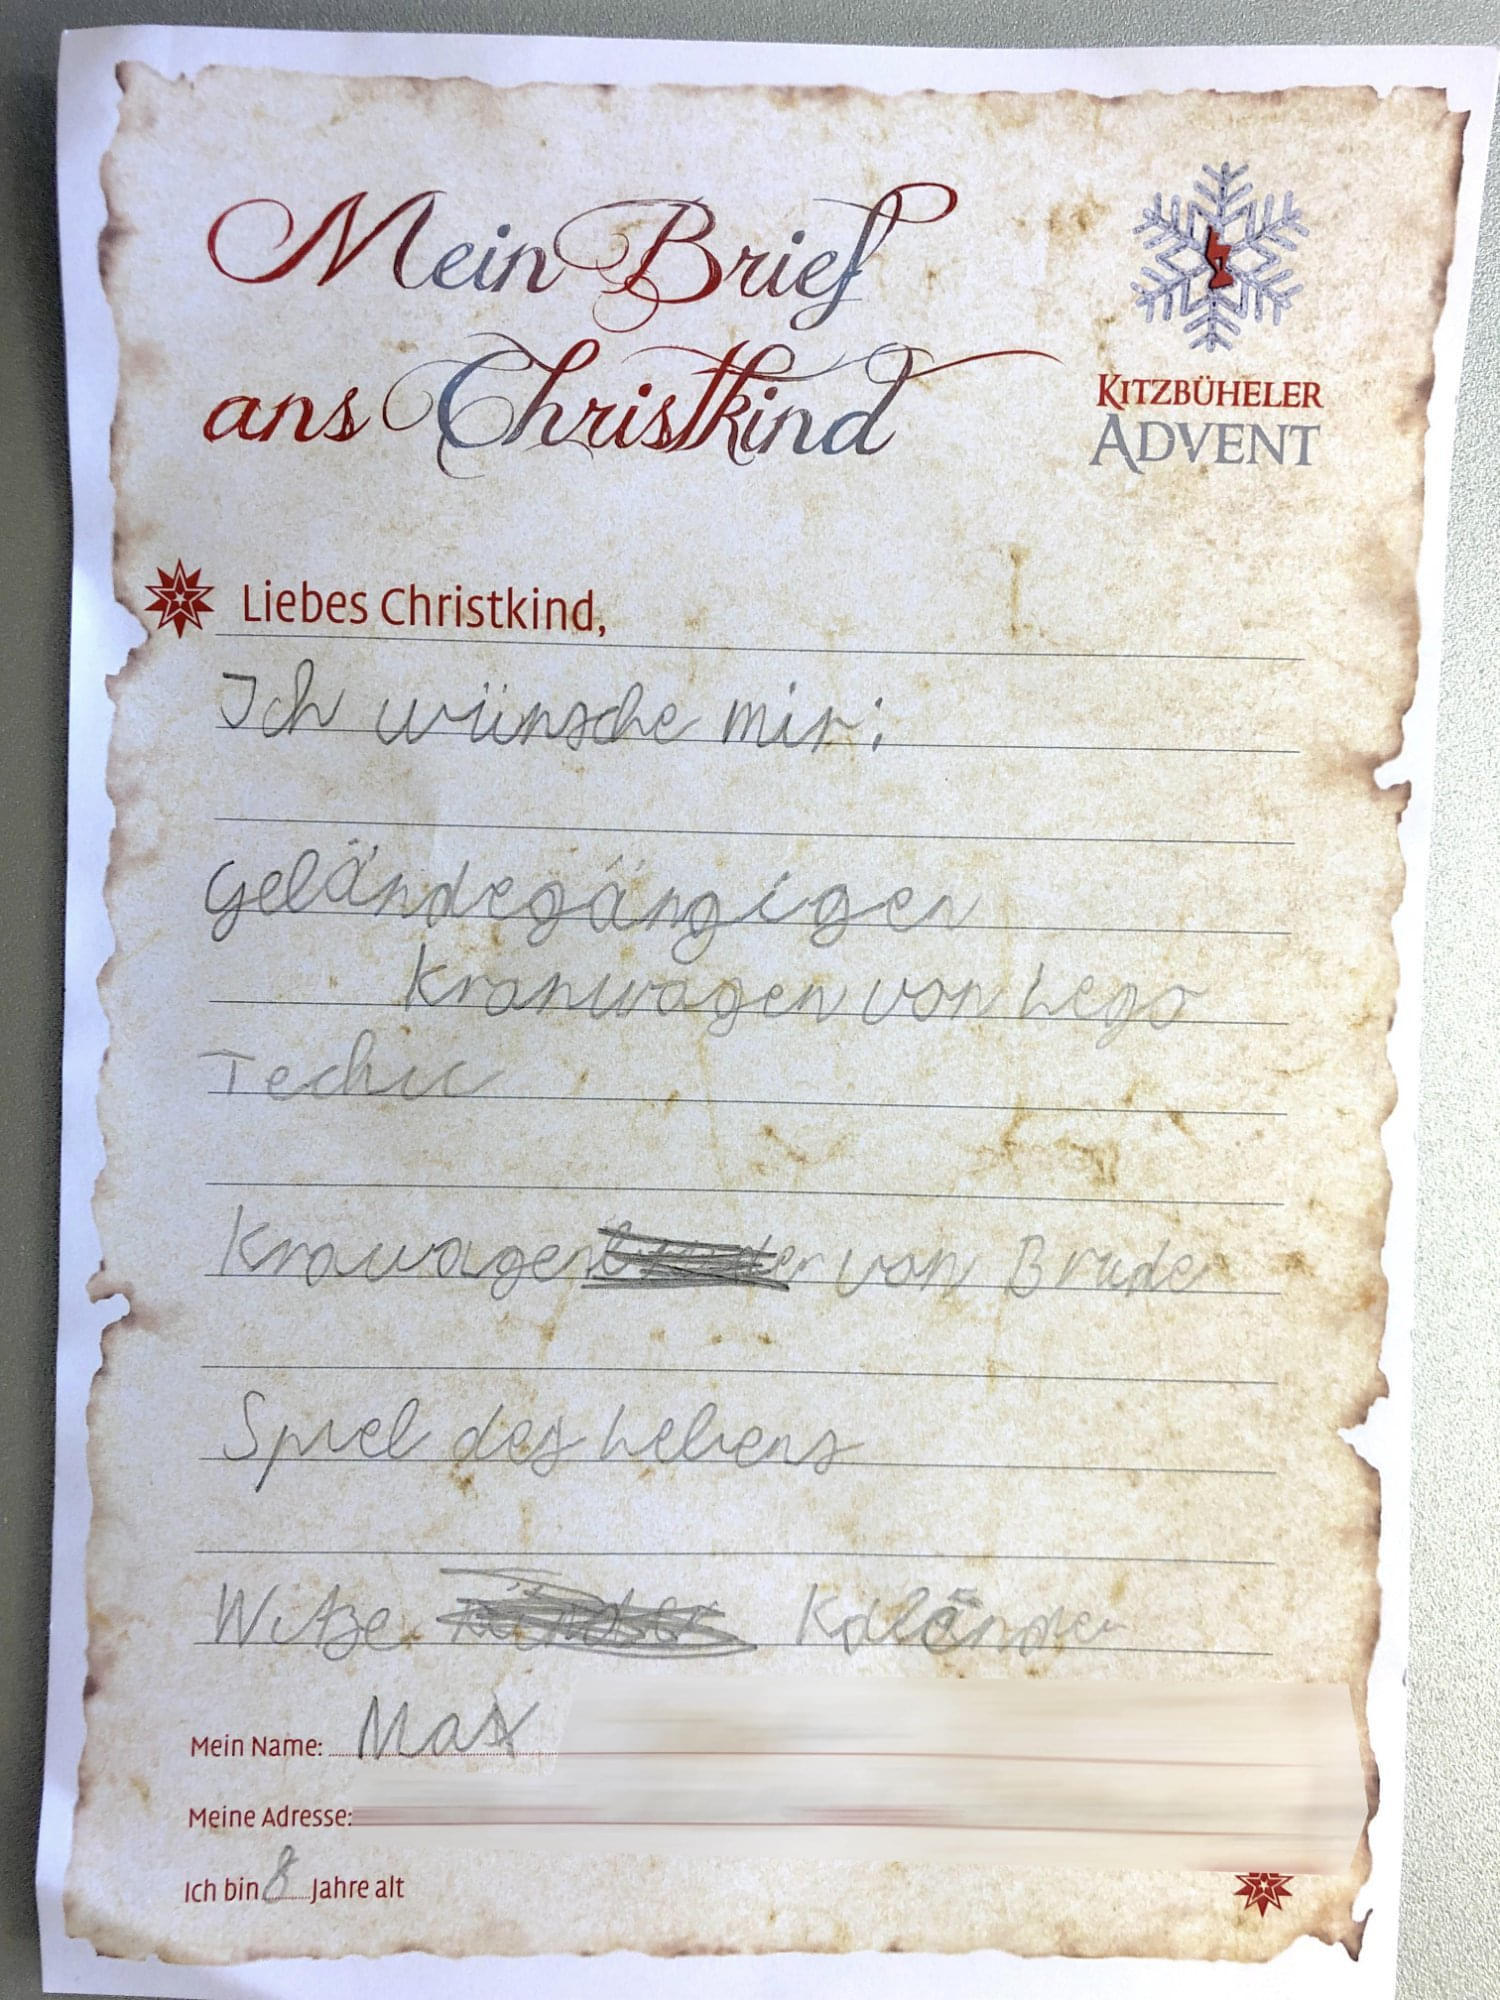 Mein Brief
ans Christkind
KITZBÜHELER
ADVENT
Liebes Christkind,
Ich wünsche mir:
Geländegängigen
Kranwagen von Lego
Techic
Krawagen von Brude
Spiel des Lebens
Witze Kaländer
Mein Name: Max
Meine Adresse:
Ich bin 8 Jahre alt